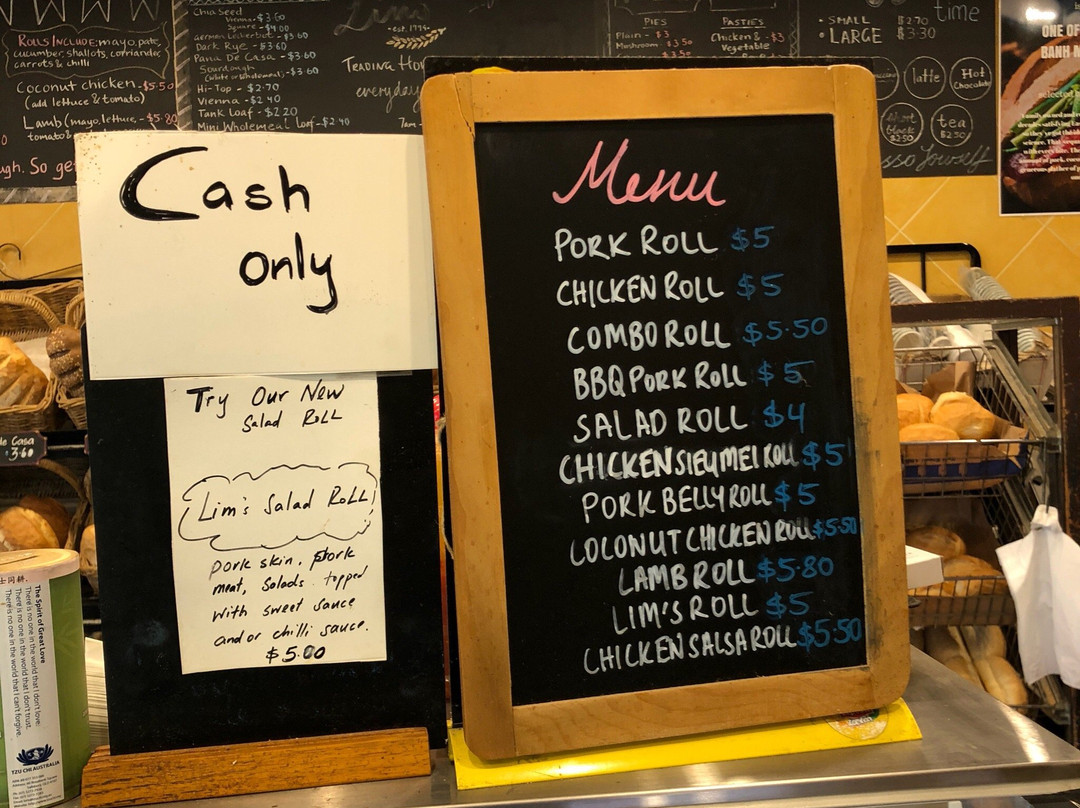 ROLLS INCLUDE: mayo, pate,
cucumber, shallots, corriander,
carrots & chilli
Coconut chicken - $5.50
(add lettuce & tomato)
Lamb (mayo, lettuce, - $5.80
tomato &
ugh. So ge
Chia Seed
Vienna - $3.60
Square - $4.00
German Leikerbot - $3.60
Dark Rye - $3.60
Pana De Casa - $3.60
Sourdough
(White or Wholemeal) - $3.60
Hi-Top - $2.70
Vienna - $2.40
Tank Loaf - $2.20
Mini Wholemeal Loaf - $2.40
Lims
est. 1995
Trading Ho
everyday
7am -
PIES
Plain - $3
Mushroom - $3.50
$3.50
PASTIES
Chicken & - $3
Vegetable
time
• SMALL $2.70
• LARGE $3.30
latte
Hot
Chocolate
short
black
$2.50
tea
$2.50
sso Yourself
ONE OF
BANH M
Cash
only
Try Our New
Salad Roll
Lim's Salad Roll
pork skin, pork
meat, Salads topped
with sweet sauce
and/or chilli sauce.
$5.00
Menu
PORK ROLL $5
CHICKEN ROLL $5
COMBO ROLL $5.50
BBQ PORK ROLL $5
SALAD ROLL $4
CHICKEN SIEUMEI ROLL $5
PORK BELLY ROLL $5
COLONUT CHICKEN ROLL $5.50
LAMB ROLL $5.80
LIM'S ROLL $5
CHICKEN SALSA ROLL $5.50
de Casa
$3.60
The Spirit of Great Love
There is no one in the world that I don't love;
There is no one in the world that I don't trust.
There is no one in the world that I can't forgive.
TZU CHI AUSTRALIA